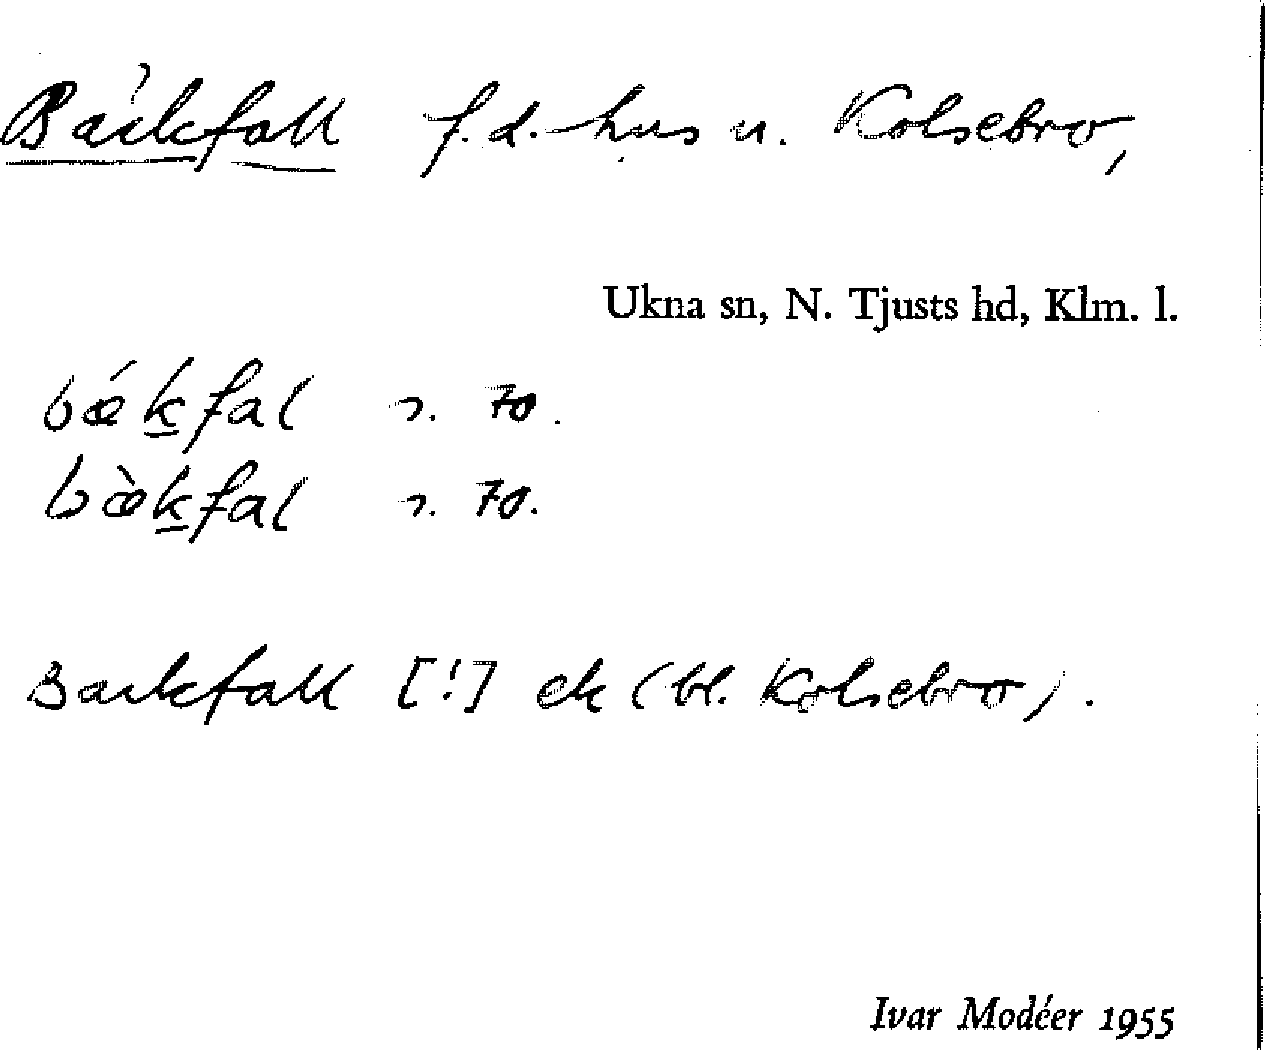 Bäckfall f.d. hus u. Kolsebro,
Ukna sn, N. Tjusts hd, Klm. l.
bǽkfal s. 70.
bæ̀kfal s. 70.
Backfall [!] ek (bl. Kolsebro).
Ivar Modéer 1955